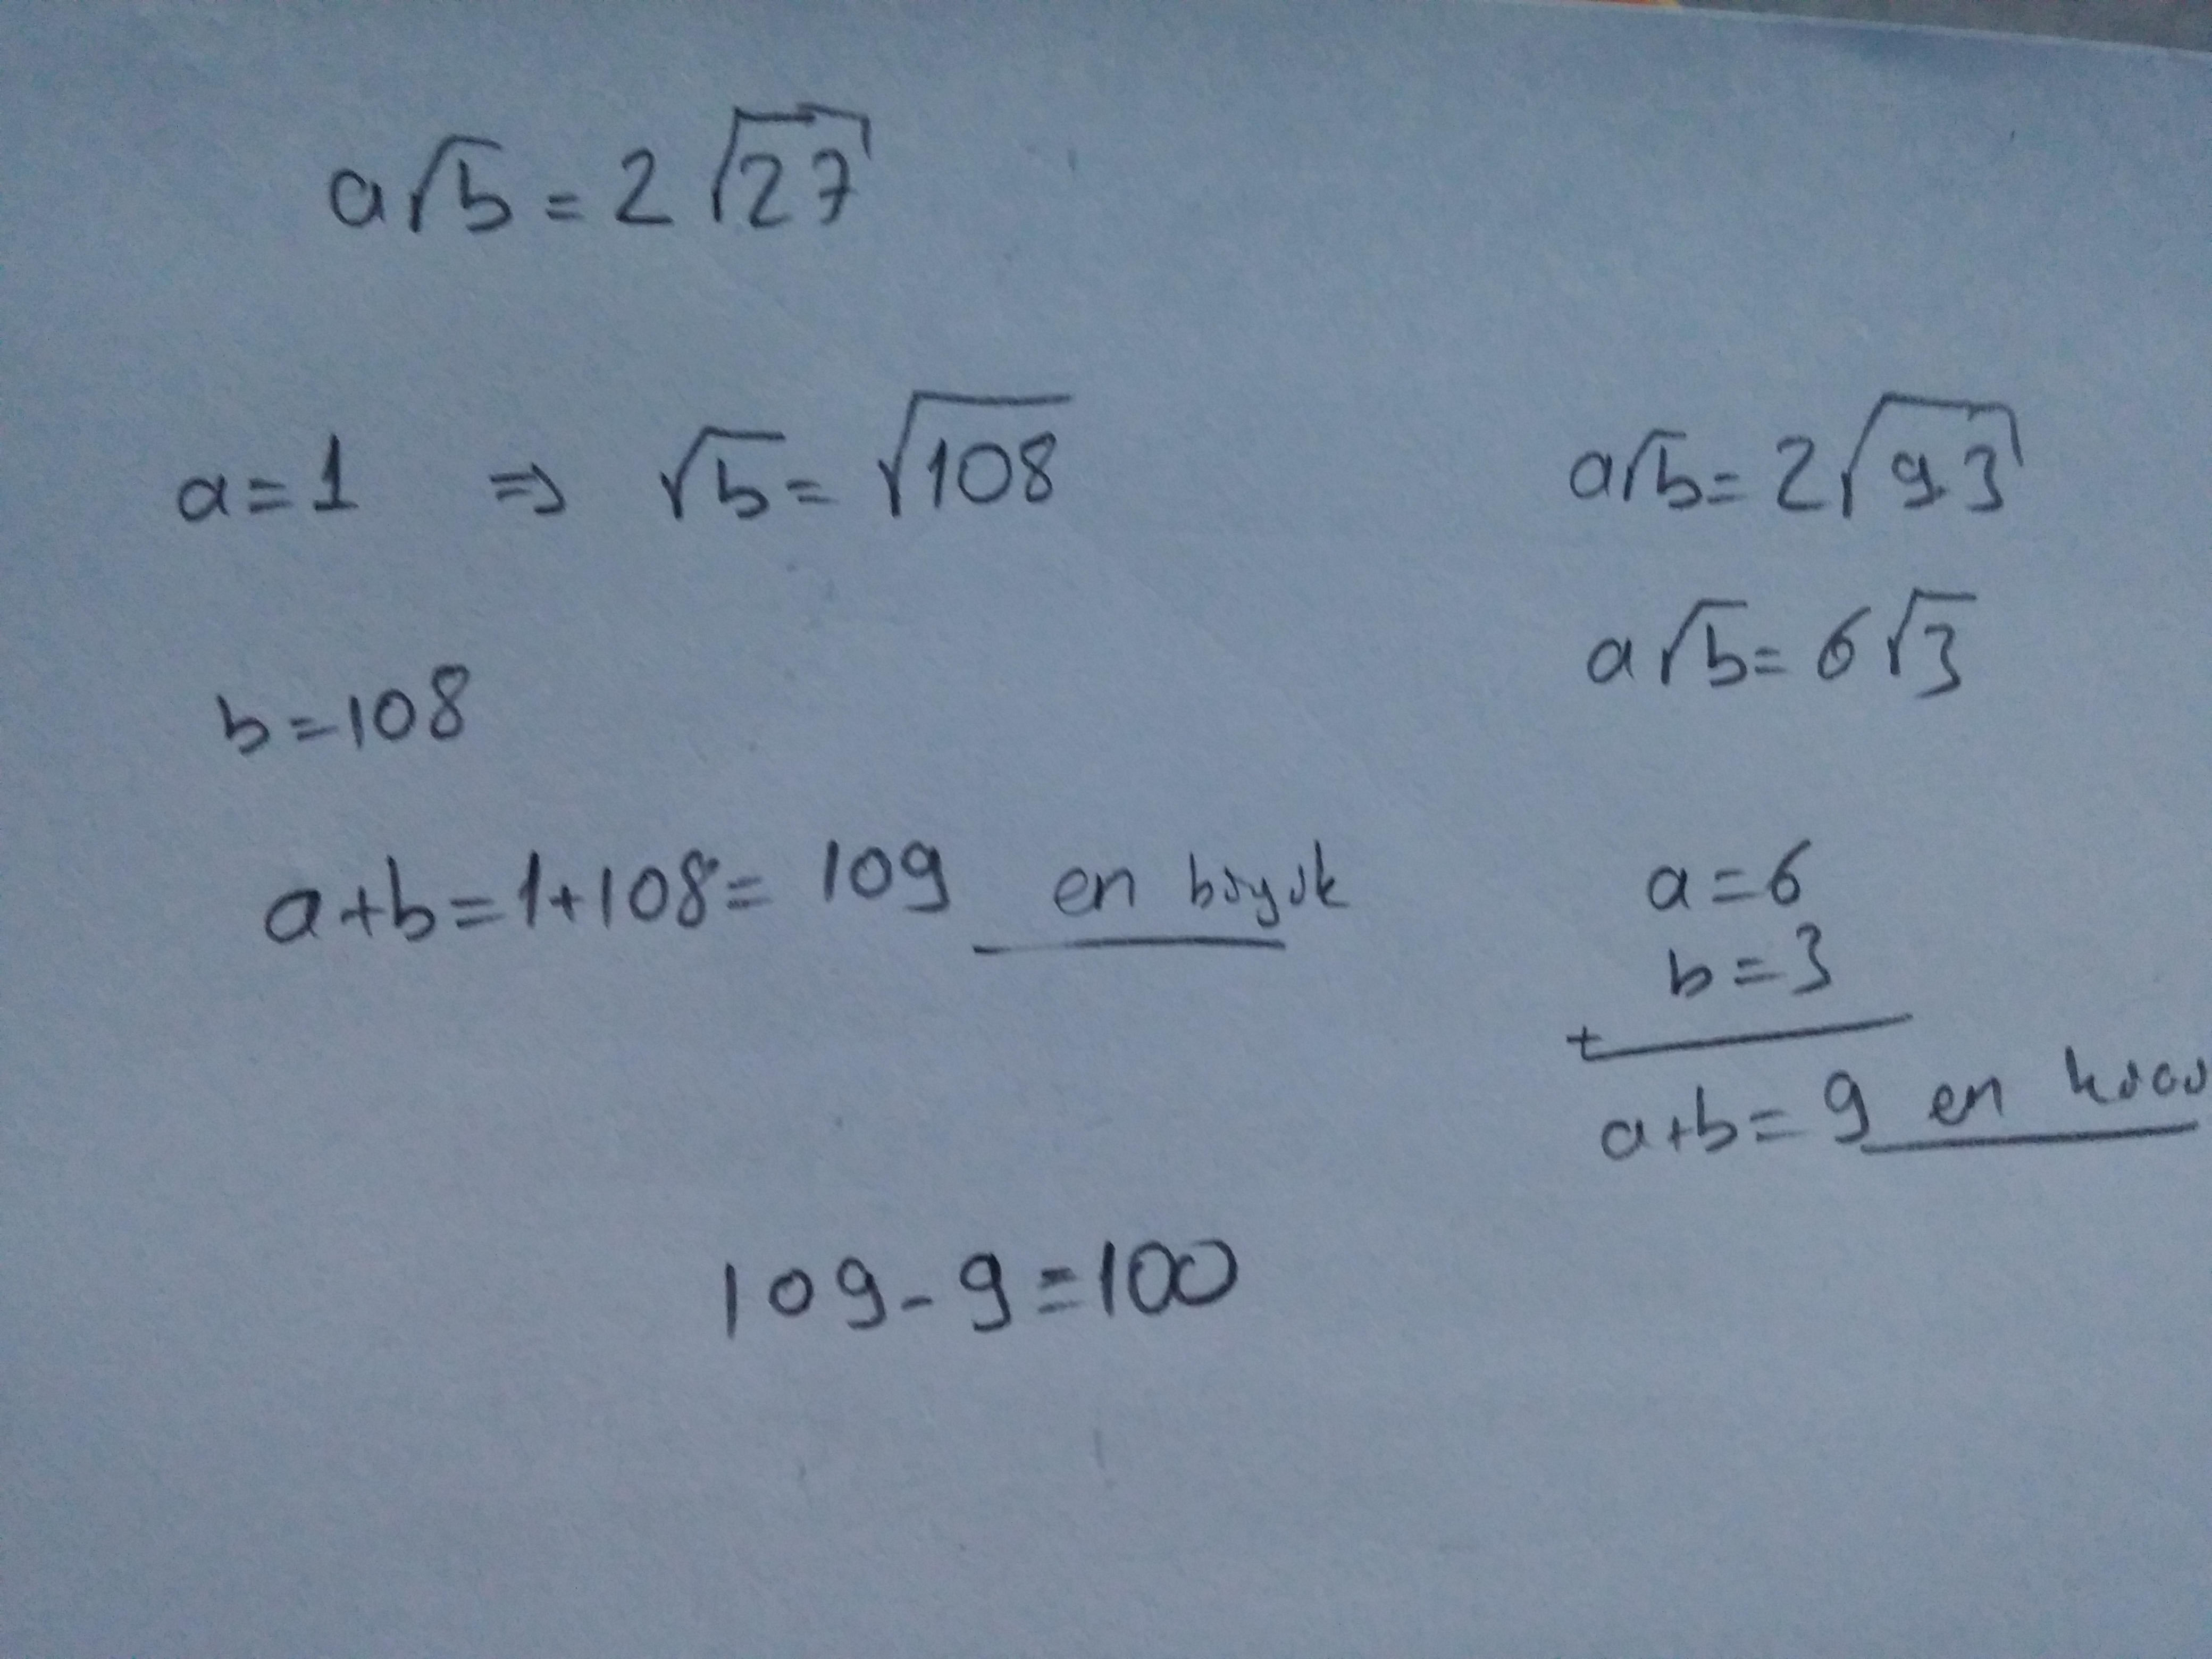 a√b = 2√27
a = 1 ⇒ √b = √108
b = 108
a + b = 1 + 108 = 109 en büyük
a√b = 2√9.3
a√b = 6√3
a = 6
b = 3
+
a + b = 9 en
109 - 9 = 100